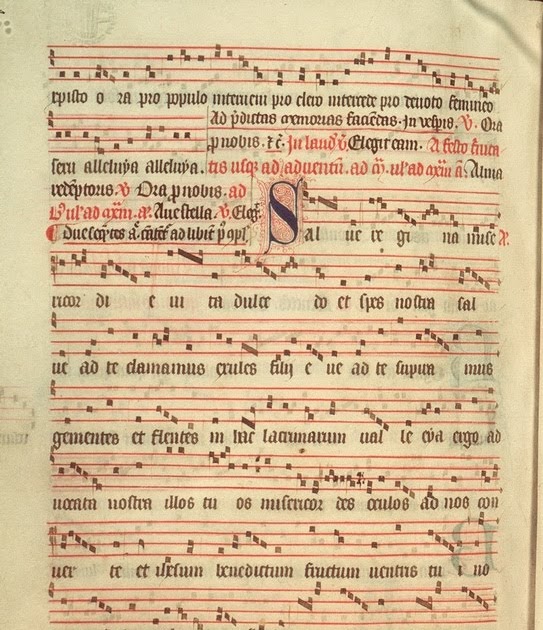 xpisto o ra pro populo interveni pro clero intercede pro devoto femineo
Ad pdictas memorias faciendas. In vespis. V. Ora
p nobis. In laud. V. Elegit eam. A festo
sexu alleluya alleluya. tis usq ad adventum. ad Alma
redeptoris. V Ora p nobis. ad
Ave stella. V. Eleg
ad libit
Sal ve re gi na mise
ricor di e vi ta dulce do et spes nostra sal
ve ad te clamamus exules filij e ve ad te suspira mus
gementes et flentes in hac lacrimarum val le eya ergo ad
vocata nostra illos tu os misericor des oculos ad nos con
ver te et ihesum benedictum fructum ventris tu i no